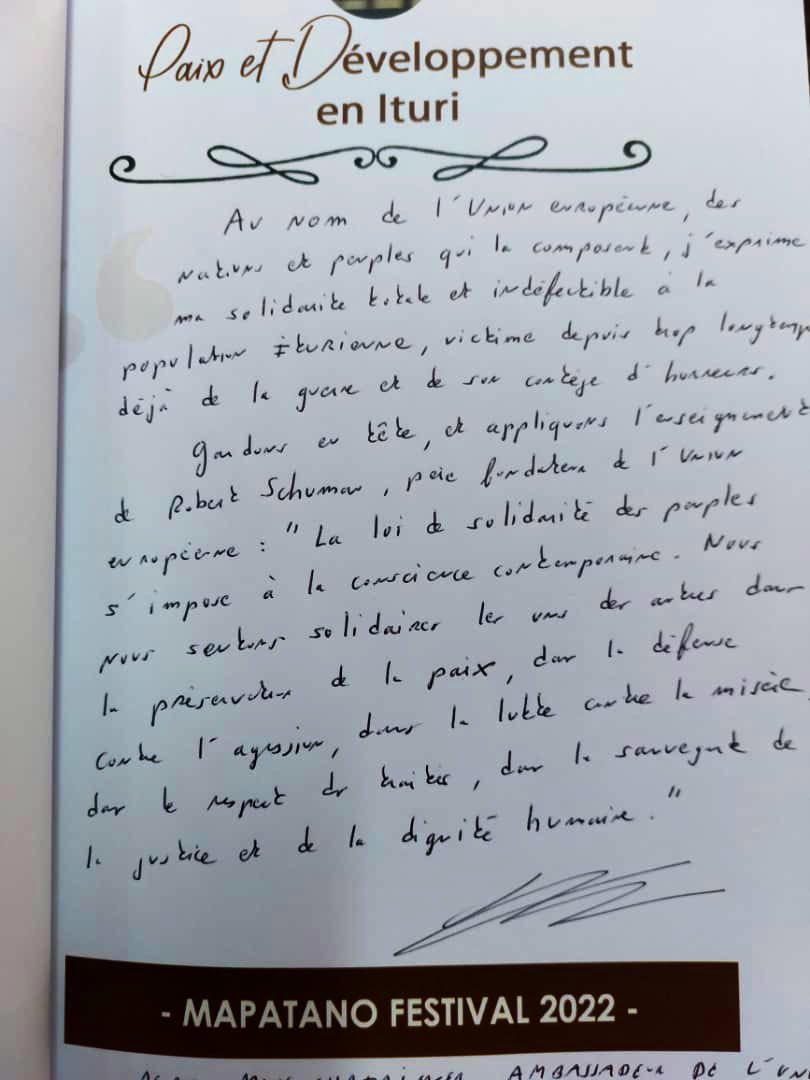 Paix et Développement
en Ituri
Au nom de l'Union européenne, des
nations et peuples qui la composent, j'exprime
ma solidarité totale et indéfectible à la
population Iturienne, victime depuis trop longtemps
déjà de la guerre et de son cortège d'horreurs.
Gardons en tête, et appliquons l'enseignement
de Robert Schuman, père fondateur de l'Union
européenne : "La loi de solidarité des peuples
s'impose à la conscience contemporaine. Nous
nous sentons solidaires les uns des autres dans
la préservation de la paix, dans la défense
contre l'agression, dans la lutte contre la misère,
dans le respect des traités, dans la sauvegarde de
la justice et de la dignité humaine."
- MAPATANO FESTIVAL 2022 -
AMBASSADEUR DE L'UN